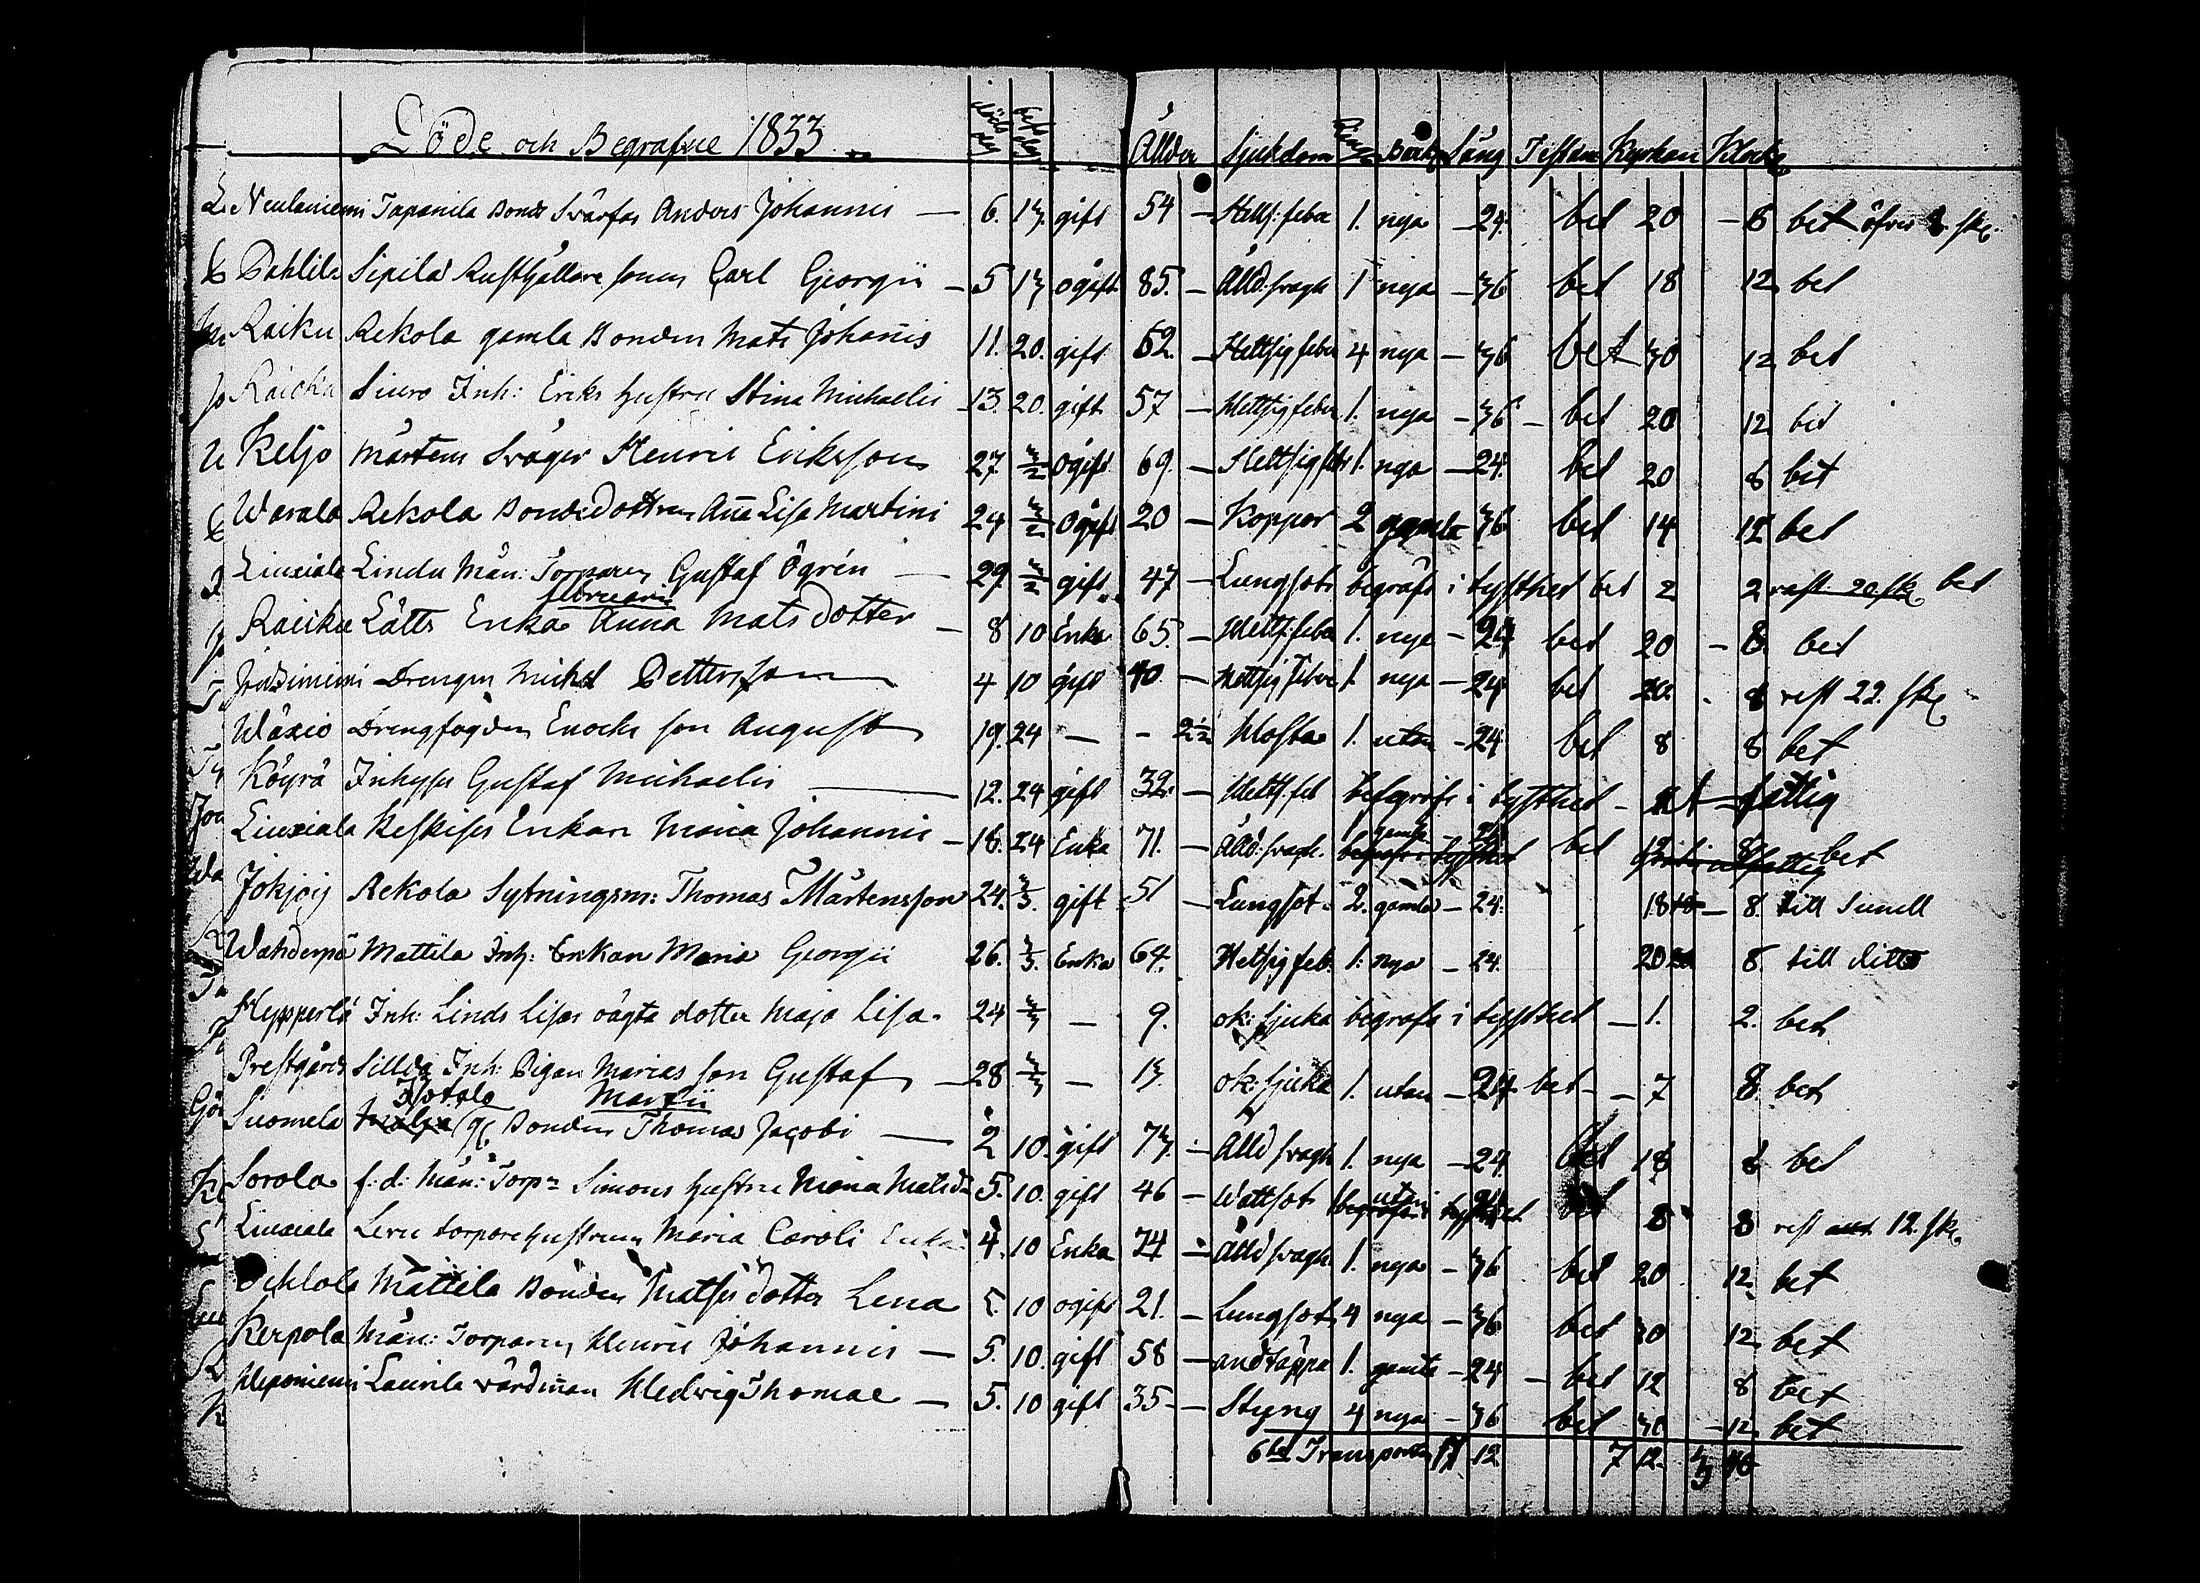 Döde och Begrafne 1833. döds dag begr. dag Ålder Sjukdom Bår Sång Testam Kyrkan Klock
Neulaniemi Tapanila Bonde Svärfar Anders Johannis — 6. 13. gift 54 — Hetts: feber 1. nya — 24. bet 20 — 8 bet öfver skl.
Pahlila Sipilä Rusthållare sonen Carl Georgii — 5 13 ogift 85. — Ålld: svagh 1 nya — 36 bet 18 12 bet
Raiku Rekola gamla Bonden Mats Johañis 11. 20. gift 62. — Hettsig feber 4 nya — 36 bet 30 12 bet
Raicku Siuro Inh: Eriks hustru Stina Michaelis 13. 20. gift 57 — Hettsig feber 1. nya — 36 — bet 20 12 bet
Keljo Mårtens Svåger Henric Eriksson 27. 3/2 Ogift 69. — Hettsig feb 1. nya — 24. bet 20 8 bet
Warala Rekola Bondedottren Aña Lisa Martini 24 3/2 Ogift 20 — Koppor 2 gamla 36 bet 14 12 bet
Liuxiala Lindu Män: Torparen Gustaf Ögrén — 29 3/2 gift 47 — Lungsot begrafs i tysthet bet 2 2 rest 20. sk bet
Februarii
Raicku Lätts Enka Anna Matsdotter — 8 10 Enka 65. — Hetts: feber 1. nya — 24 bet 20 — 8. bet
Drengen Michel Pettersson 4 10 gift 40 — Hettsig feber 1. nya — 24 bet 20. 8 rest 22. sk
Wäxiö Drengfogden Enochs son August 19. 24 — - 2½ Hosta 1. utan — 24 bet 8 8 bet
Köyrä Inhyses Gustaf Michaelis — 12. 24 gift 32. — Hetts. feb begrafs i tysthet — fattig
Liuxiala Keskises Enkan Maria Johannis — 16. 24 Enka 71. — Ålld: svagh. 1 gamla 24 begrafs i tysthet bet 12 8 bet
Jokjoij Rekola Sytningsm: Thomas Mårtensson 24. 3/3. gift 51 — Lungsot. 2. gamla — 24. 18 — 8. till Sunell
Mattila Inh: Enkan Maria Georgii 26. 3/3. Enka 64. Hetsig feb. 1. nya — 24. 20 8. till ditto
Hypperlä Inh: Linds Lisas oägta dotter Maja Lisa. 24 3/3 — 9. ok: sjuka begrafs i tysthet — 1. 2. bet
Prestgårds Sillda Inh: Pigan Marias son Gustaf — 28 3/3 — 13. ok: sjuka 1. utan — 24 bet — 7 8 bet
Martii
Suomela Bonden Thomas Jacobi — 2 10. gift 73. — Ålld svagh 1. nya — 24 bet 18 8 bet
Sorola f: d: Män: Torp: Simons hustru Maria Matsd: 5. 10. gift 46 — Wattsot 1 utan 24 begrafs i tysthet bet 8 8 rest 12. sk.
Liuxiala Leru torpare hustrun Maria Caroli Enka 4. 10 Enka 74 — Ålld svagh 1. nya — 36 bet 20 12. bet
Mattila Bonden Matsis dotter Lena 5. 10 ogift 21. — Lungsot 4 nya — 36 bet 30 12. bet
Kerpola Män: Torparen Henric Johannis — 5. 10. gift 58 — andtäppa 1. gamla — 24 — bet 12 8 bet
Heponiemi Laurila värdiñan Hedwig Thomae — 5. 10 gift 35 — Styng 4 nya — 36 bet 30 — 12. bet
Transporten 17 12 7 12. 3 16